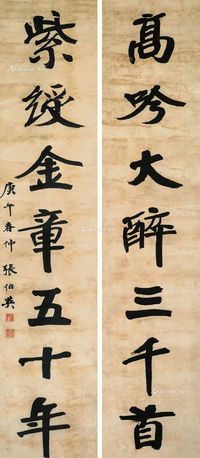 高吟大醉三千首
紫綬金章五十年
庚午春仲 張伯英